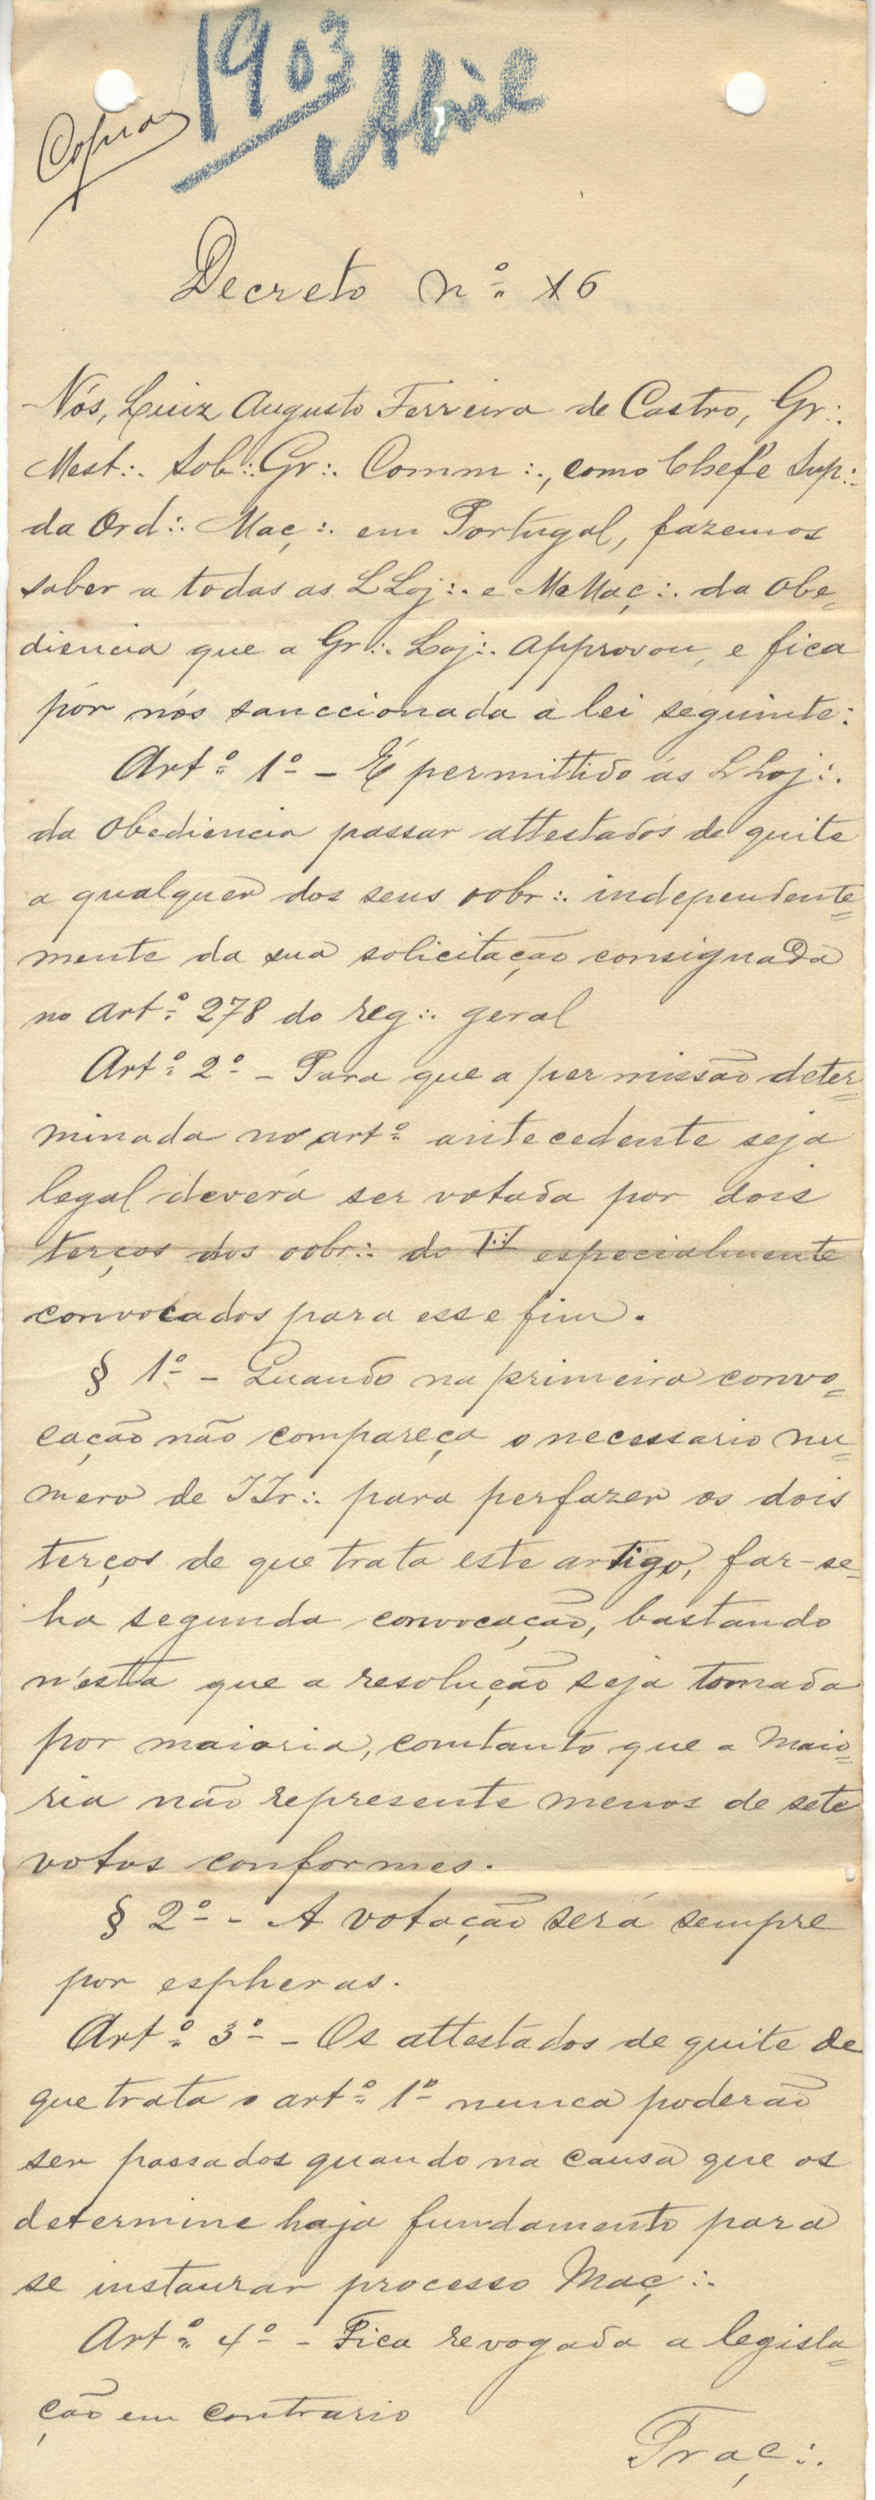 1903
Abril
Copia
Decreto nº 16
Nós, Luiz Augusto Ferreira de Castro, Gr∴
Mest∴ Sob∴ Gr∴ Comm∴, como Chefe Sup∴
da Ord∴ Maç∴ em Portugal, fazemos
saber a todas as LLoj∴ e MMaç∴ da Obe=
diencia que a Gr∴ Loj∴ approvou, e fica
por nós sanccionada a lei seguinte:
Artº 1º - É permittido ás LLoj∴
da Obediencia passar attestados de quite
a qualquer dos seus oobr∴ independente=
mente da sua solicitação consignada
no artº 278 do reg∴ geral
Artº 2º - Para que a permissão deter=
minada no artº antecedente seja
legal deverá ser votada por dois
terços dos oobr∴ do especialmente
convocados para esse fim.
§ 1º - Quando na primeira convo=
cação não compareça o necessario nu=
mero de IIr∴ para perfazer os dois
terços de que trata este artigo, far-se=
ha segunda convocação, bastando
n'esta que a resolução seja tomada
por maioria, comtanto que a maio=
ria não represente menos de sete
votos conformes.
§ 2º - A votação será sempre
por espheras.
Artº 3º - Os attestados de quite de
que trata o artº 1º nunca poderão
ser passados quando na causa que os
determine haja fundamento para
se instaurar processo Maç∴
Artº 4º - Fica revogada a legisla=
ção em contrario
Traç∴